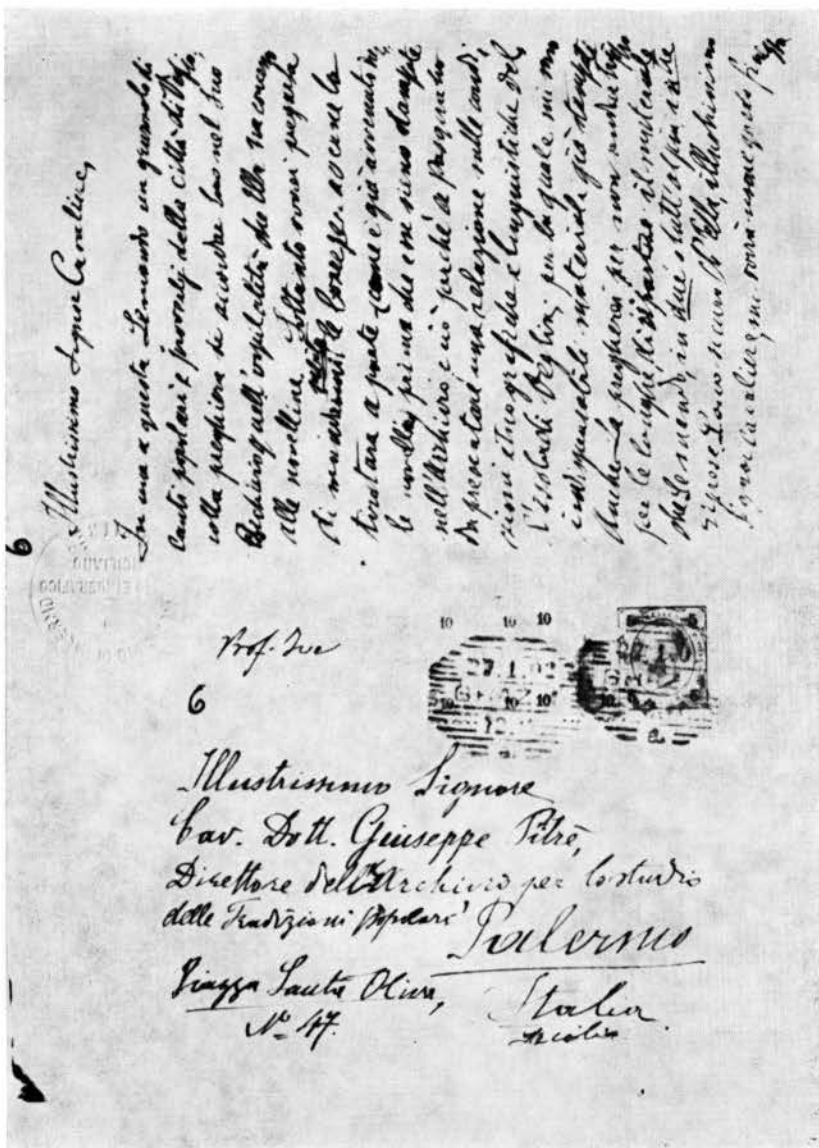 6
Illustrissimo Signor Cavaliere,
In una a questa Le mando un gruzzolo di
canti popolari e proverbj della città di Veglia,
colla preghiera di accordar loro nel Suo
Archivio quell'ospitalità che Ella ha concesso
alle novelline. Soltanto vorrei pregarla
di le bozze per averne la
tiratura a parte come è già avvenuto
le novelle, prima che esse sieno stampate
nell'Archivio; e ciò perchè a Pasqua ho
da presentare una relazione sulle condi-
zioni etnografiche e linguistiche del-
l'isola di Veglia, per la quale mi
indispensabile materiale già stampato
Anche La pregherei per non andar troppo
per le lunghe, di spartire il materiale
che Le mando in due o tutt'al più in tre
riprese. Sono sicuro ch'Ella, illustrissimo
Signor Cavaliere, mi vorrà usare questo
Prof. Ive
6
10 10 10
10 10 10
5 5
Illustrissimo Signore
Cav. Dott. Giuseppe Pitrè,
Direttore dell'Archivio per lo studio
delle Tradizioni popolari
Palermo
Piazza Santa Oliva,
Nº 47.
Italia
Sicilia